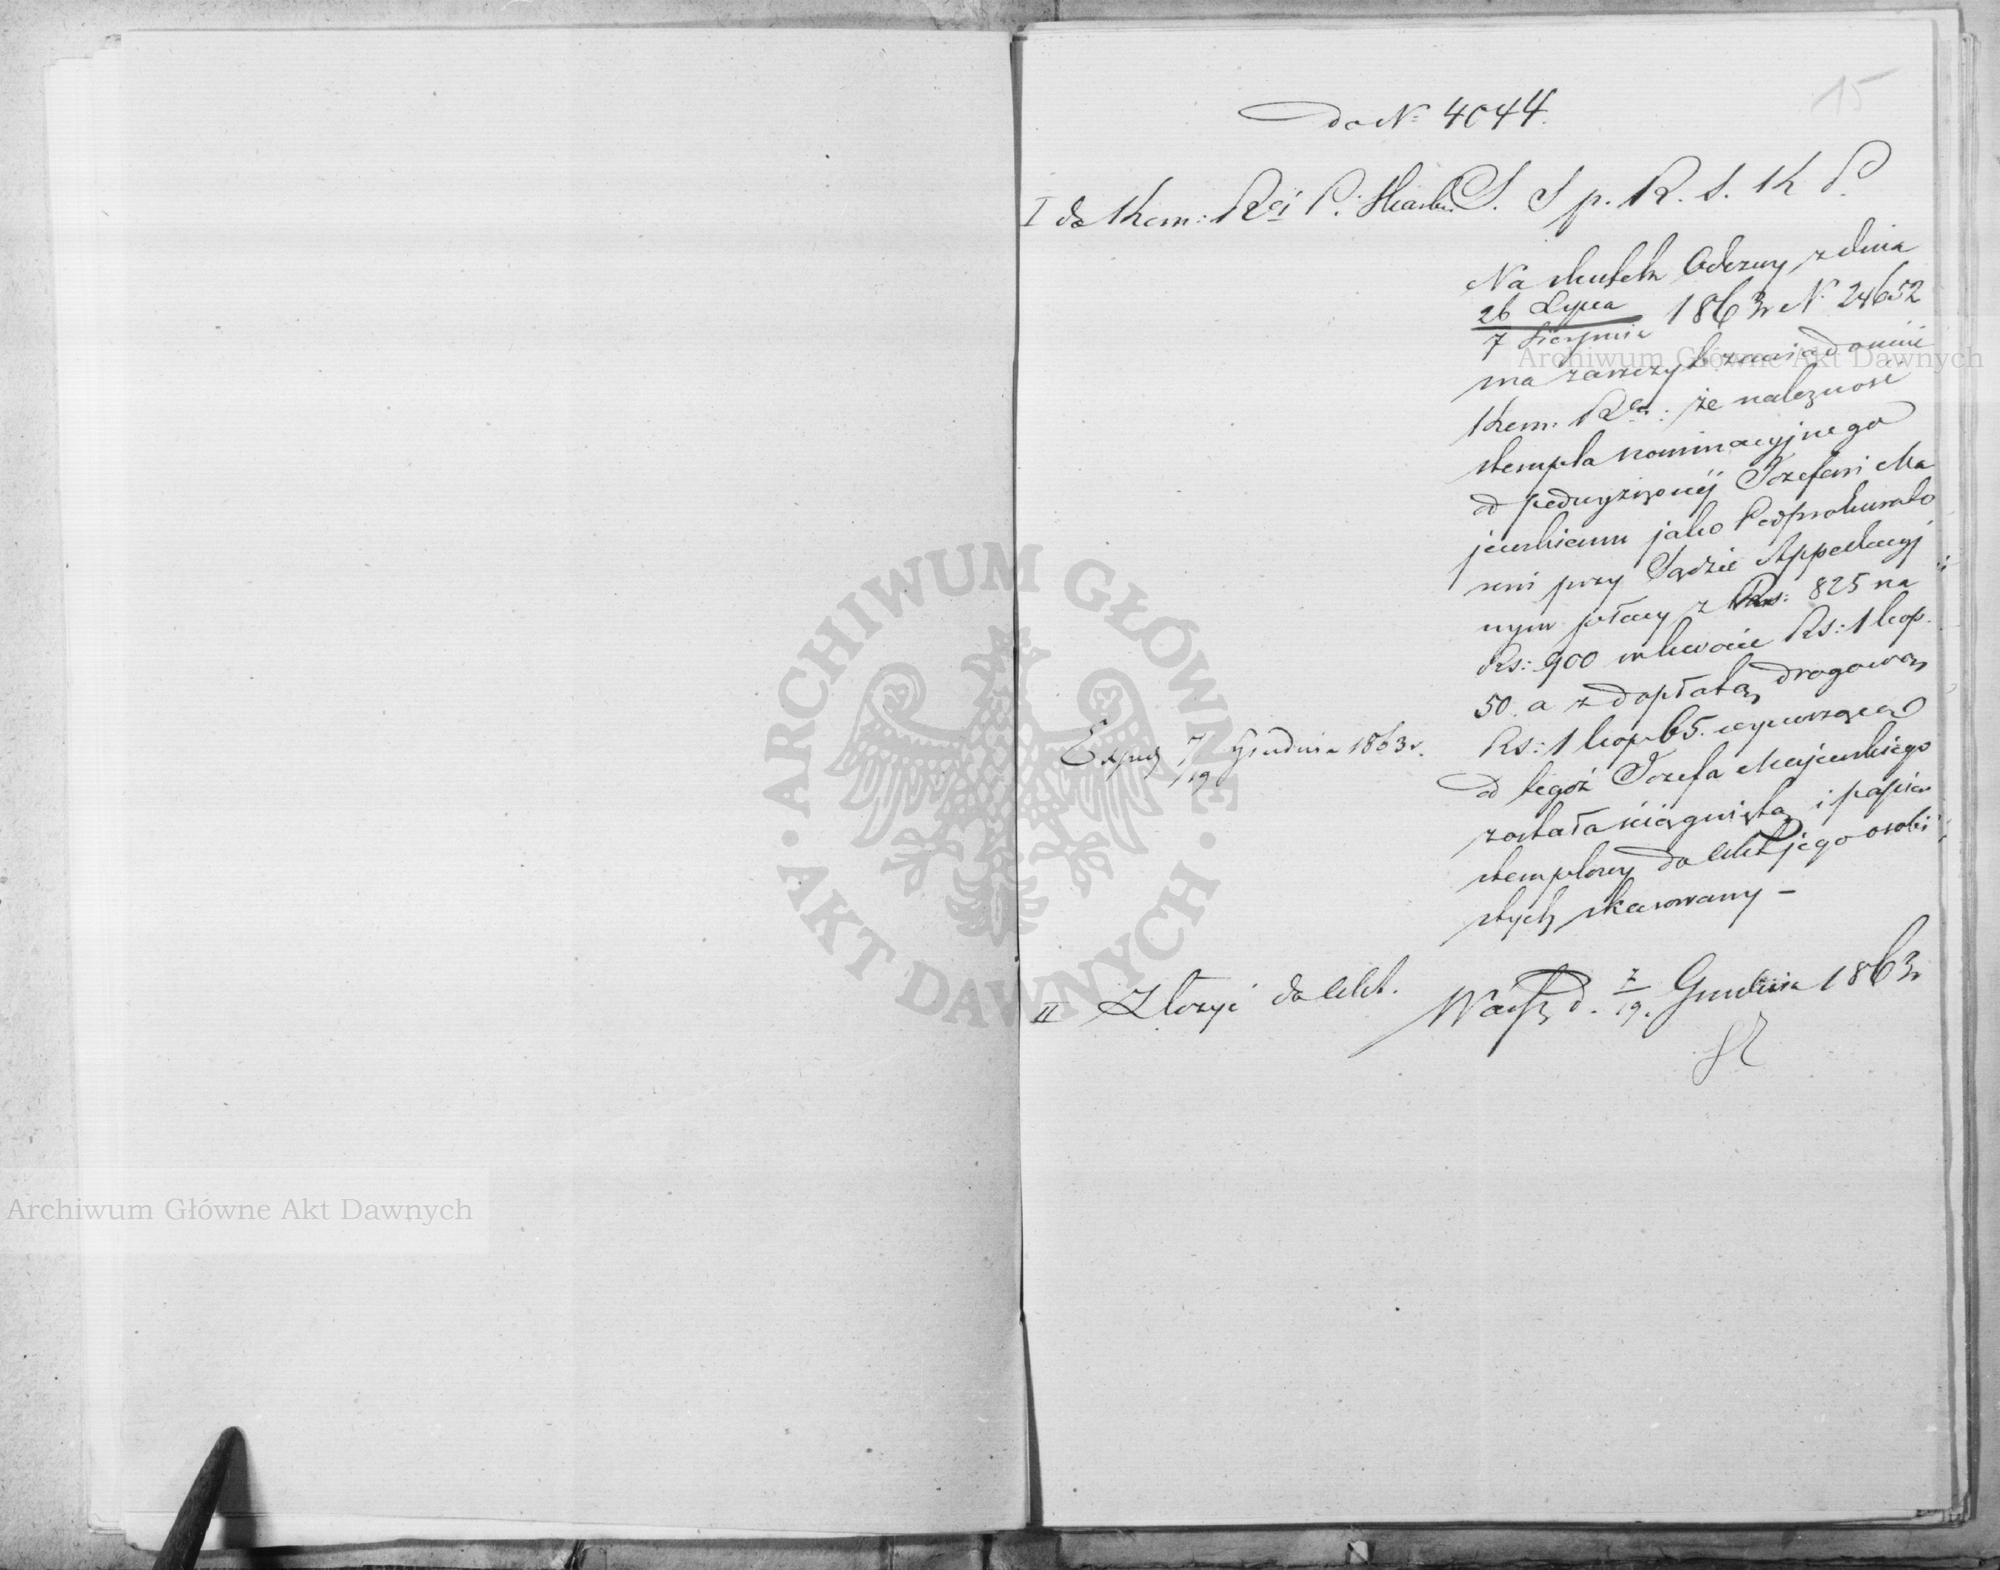 15
do No 4044.
I do Kom: Rei P. i Skarbu S. S p. R. S. K P.
Na skutek Odezwy z dnia
26 Lipca
7 Sierpnia 1863r No 24652
ma zaszczyt zawiadomić
Kom: Rei: że należność
stempla nominacyjnego
od podwyższonej Józefowi Ma
jewskiemu jako Podprokurato
rowi przy Sądzie Appellacyj
nym płacy z Rs: 825 na
Rs: 900 w kwocie Rs: 1 kop.
50. a z dopłatą drogową
Rs: 1 kop 65. wynosząca
od tegoż Józefa Majewskiego
została ściągniętą i papier
stemplowy do Akt jego osobi
stych skasowany –
Exped 7/19 Grudnia 1863r.
II Złożyć do Akt.
Warsz d. 7/19. Grudnia 1863r
Archiwum Główne Akt Dawnych
ARCHIWUM GŁÓWNE · AKT DAWNYCH ·
Archiwum Główne Akt Dawnych